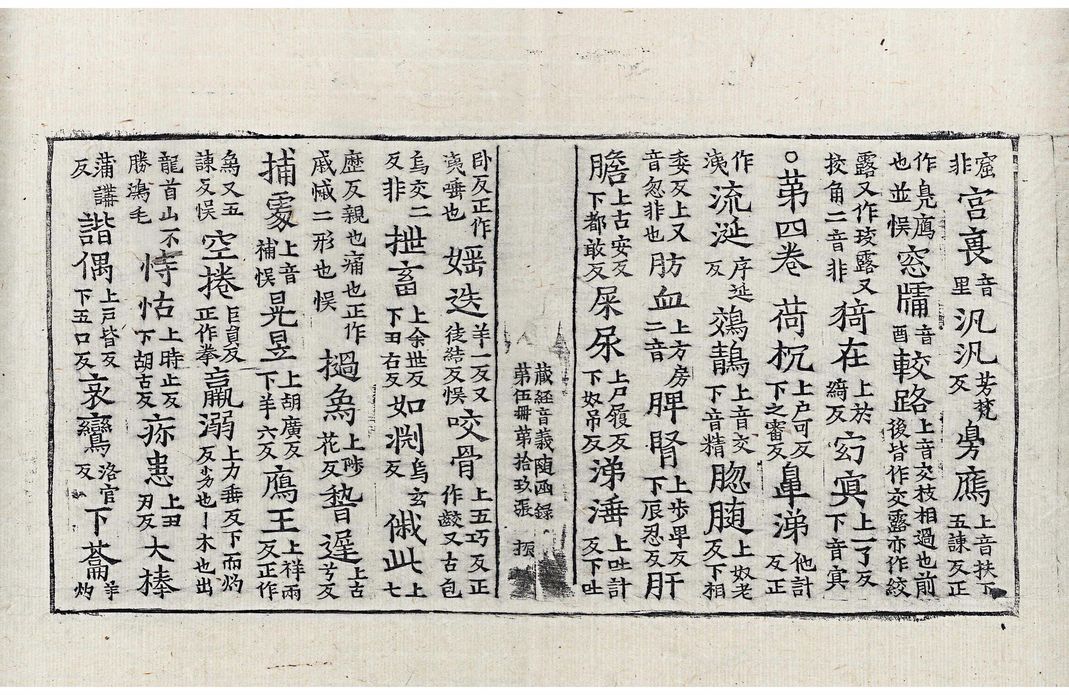 窟非宫裏音里汎汎芳梵反鳧鴈上音扶下五諫反正
作鳧鴈也並悞窓牖音酉較路上音交枝相過也前後皆作交露亦作絞
露又作珓露又挍角二音非猗在上於綺反窈㝠上一了反下音㝠
○苐四卷荷枕上户可反下之審反鼻涕他計反正
作洟流涎序延反鵁鶄上音交下音精䐉髄上奴老反下相
委反上又音忽非也肪血上方房二音脾腎上步卑反下辰忍反肝
膽上古安反下都敢反屎尿上尸履反下奴吊反涕唾上吐計反下吐
藏經音義随函録
苐伍冊苐拾玖張 振
卧反正作洟唾也婬迭羊一反又徒結反悞咬骨上五巧反正作齩又古包
烏交二反非抴畜上余世反下丑右反如渕烏玄反傶此上七
歷反親也痛也正作戚慽二形也悞撾為上陟花反遟上古兮反
捕上音補悞晃昱上胡廣反下羊六反鴈王上祥兩反正作
為又五諫反悞空捲巨員反正作拳羸溺上力垂反下而灼反劣也丨木也出
龍首山不勝鴻毛恃怙上時止反下胡古反疢患上丑刃反大棒
蒲講反諧偶上户皆反下五口反哀鸞洛官反下蘥羊灼